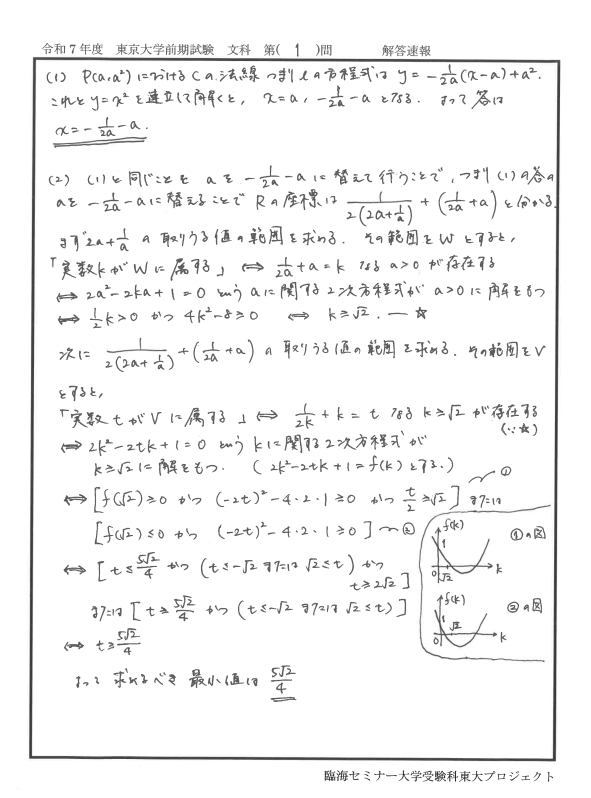 令和7年度 東京大学前期試験 文科 第( 1 )問 解答速報
(1) P(a, a²)におけるCの法線つまりlの方程式は y = -1/2a(x-a)+a².
これと y=x² を連立して解くと, x=a, -1/2a-a となる. よって答は
x = -1/2a - a.
(2) (1)と同じことを a を -1/2a-a に替えて行うことで, つまり(1)の答の
a を -1/2a-a に替えることで R の座標は 1/2(2a+1/a) + (1/2a+a) と分かる.
まず 2a+1/a の取りうる値の範囲を求める. その範囲をWとすると,
「実数kがWに属する」 ⇔ 1/2a+a=k なる a>0 が存在する
⇔ 2a²-2ka+1=0 という a に関する2次方程式が a>0 に解をもつ
⇔ 1/2k>0 かつ 4k²-8≥0 ⇔ k≥√2. ―☆
次に 1/2(2a+1/a)+(1/2a+a) の取りうる値の範囲を求める. その範囲をV
とすると,
「実数tがVに属する」 ⇔ 1/2k+k=t なる k≥√2 が存在する
(∵☆)
⇔ 2k²-2tk+1=0 という k に関する2次方程式が
k≥√2 に解をもつ. ( 2k²-2tk+1=f(k) とする.)
⇔ [f(√2)≥0 かつ (-2t)²-4・2・1≥0 かつ t/2≥√2] または ~①
[f(√2)≤0 かつ (-2t)²-4・2・1≥0] ~②
⇔ [t≤5√2/4 かつ (t≤-√2 または √2≤t) かつ
t≥2√2]
または [t≥5√2/4 かつ (t≤-√2 または √2≤t)]
⇔ t≥5√2/4
よって求めるべき最小値は 5√2/4
f(k) ①の図
1
0 √2 k
f(k)
1 √2 ②の図
0 k
臨海セミナー大学受験科東大プロジェクト